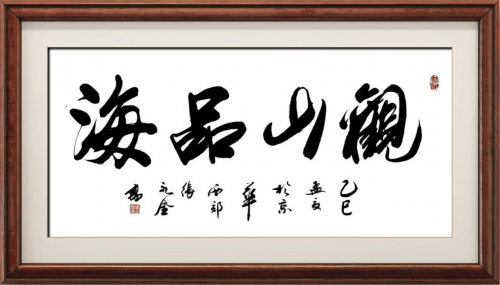 觀山品海
乙巳孟夏於京華西郊張永金書